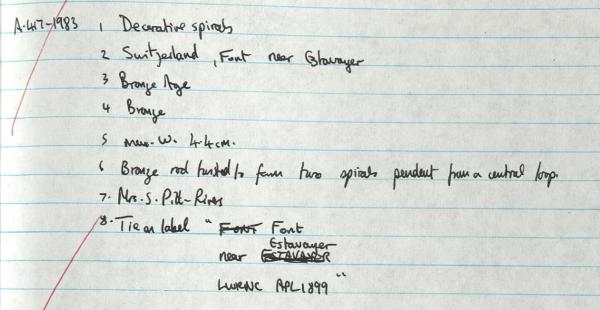 A.417-1983 1 Decorative spirals
2 Switzerland, Font near Estavayer
3 Bronze Age
4 Bronze
5 max. W. 4.4cm.
6 Bronze rod twisted to form two spirals pendent from a central loop.
7. Mrs. S. Pitt-Rivers
8. Tie on label " Font Font
Estavayer
near ESTAVAYER
APL 1899 "